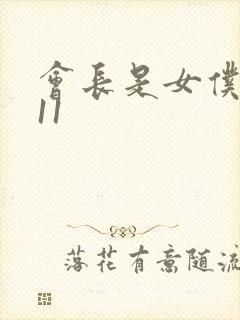 會長是女僕
11
落花有意随流